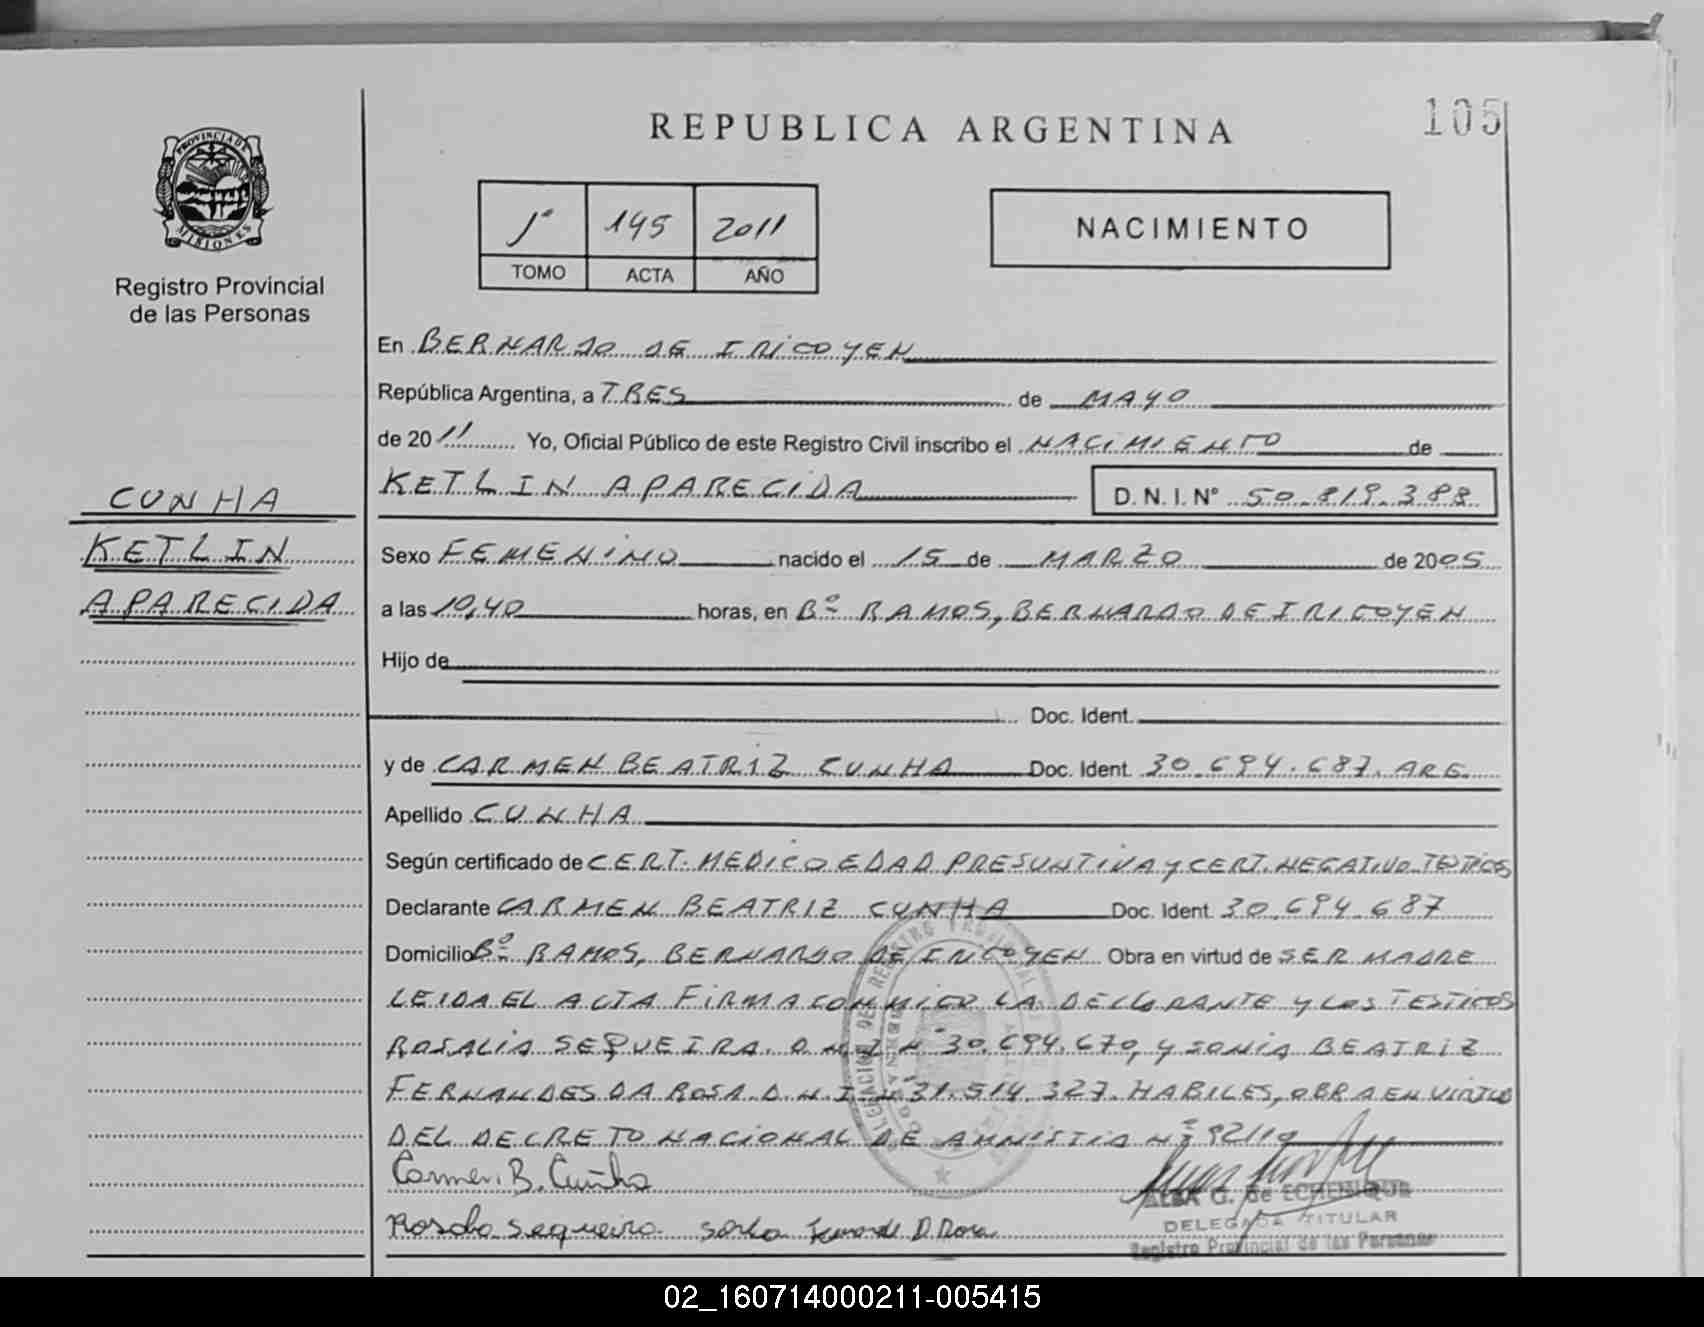 105
REPUBLICA ARGENTINA
PROVINCIA DE
MISIONES
Registro Provincial
de las Personas
1º 145 2011
TOMO ACTA AÑO
NACIMIENTO
En BERNARDO DE IRIGOYEN
República Argentina, a TRES de MAYO
de 2011 Yo, Oficial Público de este Registro Civil inscribo el NACIMIENTO de
KETLIN APARECIDA D.N.I. Nº 50.819.388
CUNHA
KETLIN
APARECIDA
Sexo FEMENINO nacido el 15 de MARZO de 2005
a las 10,40 horas, en Bº RAMOS, BERNARDO DE IRIGOYEN
Hijo de
Doc. Ident.
y de CARMEN BEATRIZ CUNHA Doc. Ident. 30.694.687. ARG.
Apellido CUNHA
Según certificado de CERT. MEDICO EDAD PRESUNTIVA y CERT. NEGATIVO TESTIGOS
Declarante CARMEN BEATRIZ CUNHA Doc. Ident. 30.694.687
Domicilio Bº RAMOS, BERNARDO DE IRIGOYEN Obra en virtud de SER MADRE
LEIDA EL ACTA FIRMA CONMIGO LA DECLARANTE y LOS TESTIGOS
ROSALIA SEQUEIRA. D.N.I. N 30.694.670, y SONIA BEATRIZ
FERNANDES DA ROSA. D.N.I. 31.514.327. HABILES, OBRA EN VIRTUD
DEL DECRETO NACIONAL DE AMNISTIA Nº 92/10
Carmen. B. Cunha
Rosalia Sequeira
ALBA G. de ECHENIQUE
DELEGADA TITULAR
Registro Provincial de las Personas
02_160714000211-005415